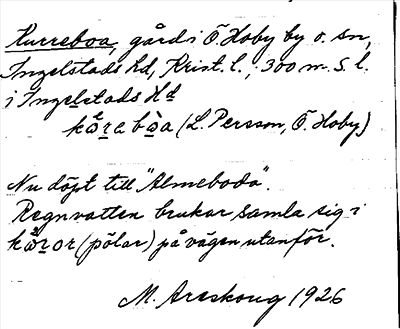 Kurreboa, gård i Ö. Hoby by o. sn,
Ingelstads hd, Krist. l., 300 m S. l.
i Ingelstads Hd
kǻra bòa (L. Persson, Ö. Hoby)
Nu döpt till "Almeboda".
Regnvatten brukar samla sig i
kǻror (pölar) på vägen utanför.
M. Areskoug 1926